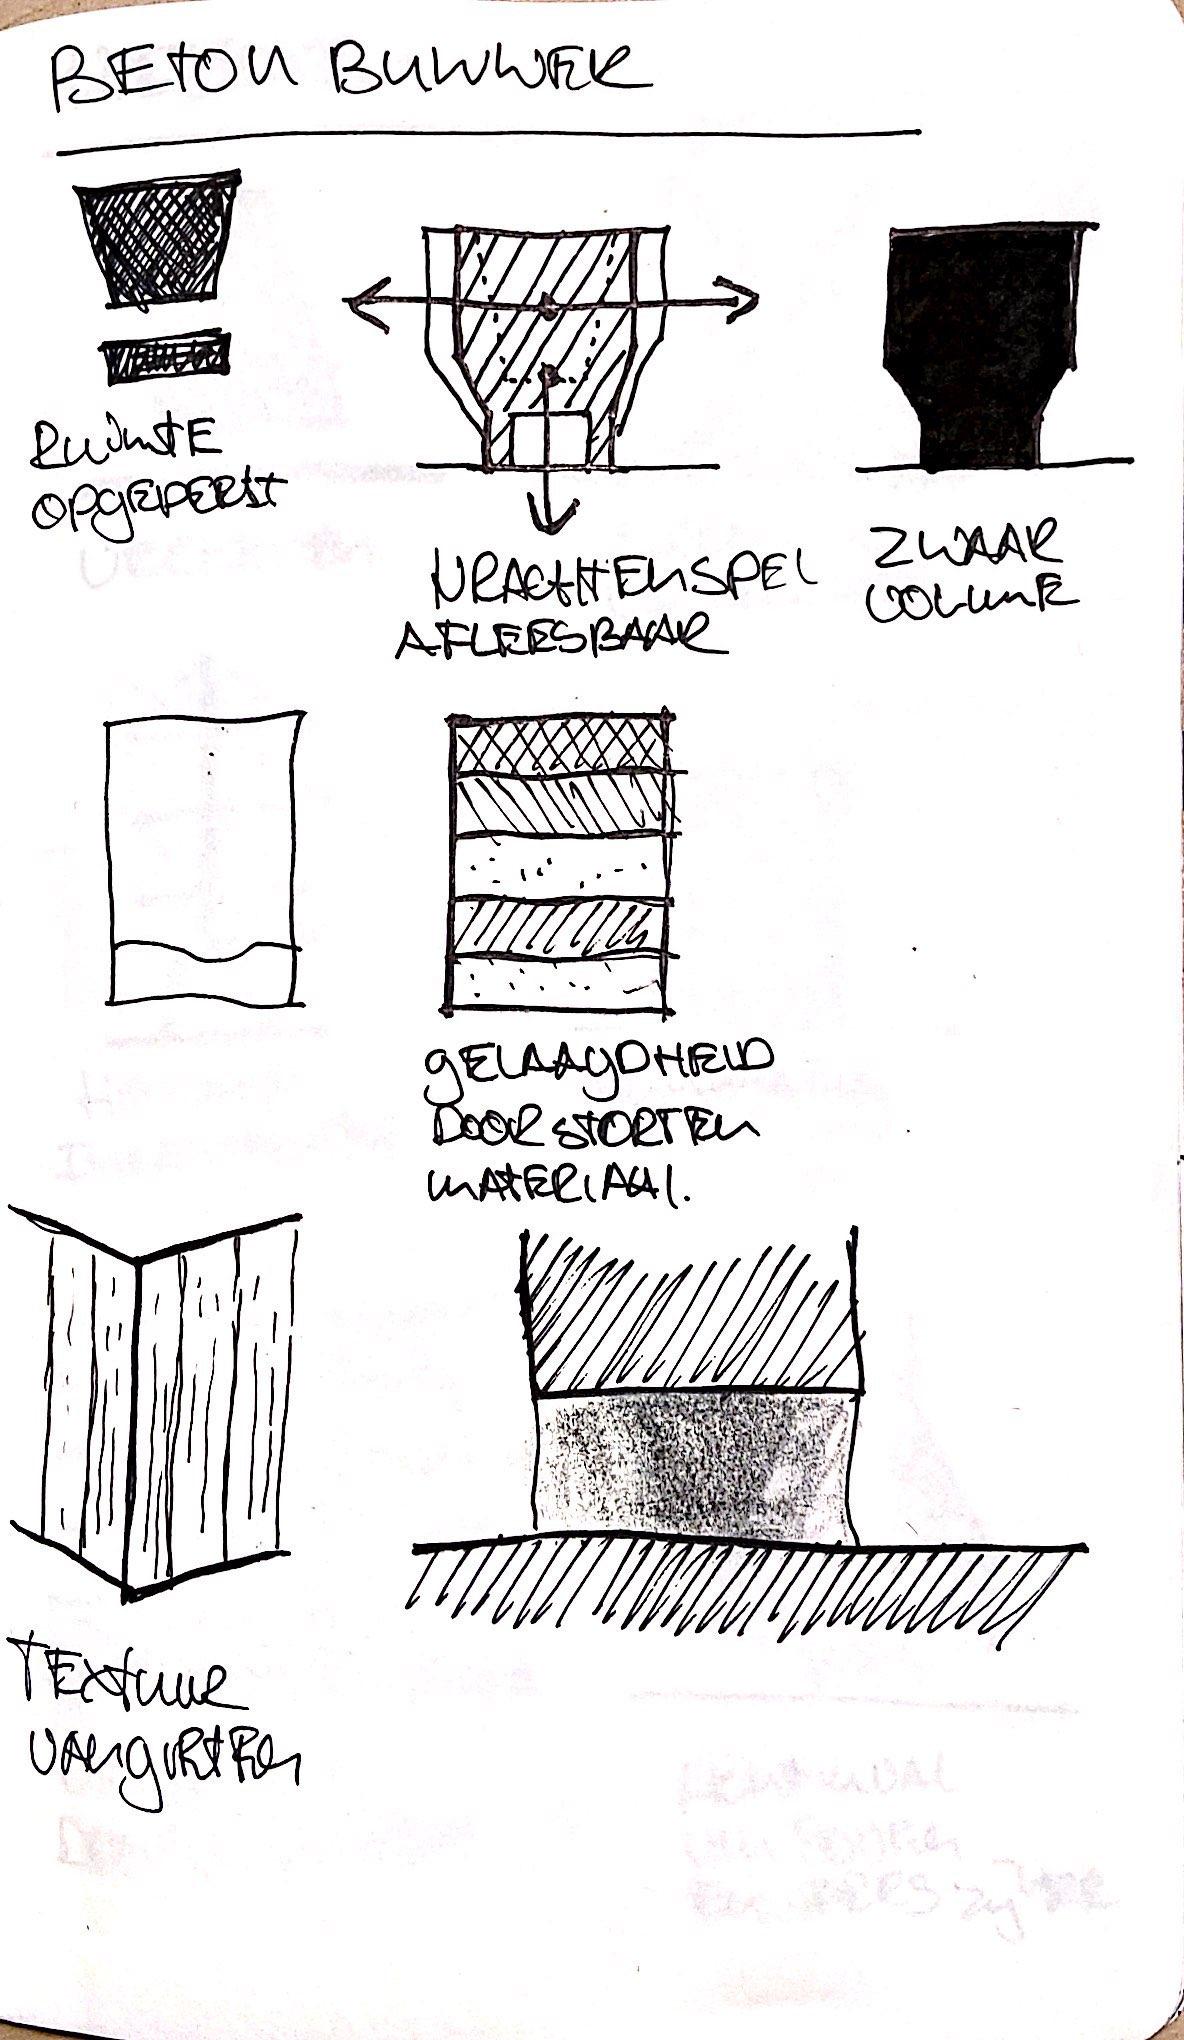 BETON BUNWER
RUIMTE
OPGEPERST
KRACHTENSPEL
AFLEESBAAR
ZWAAR
VOLUME
GELAAGDHEID
DOOR STORTEN
MATERIAAL.
TEXTUUR
VAN GIETEN